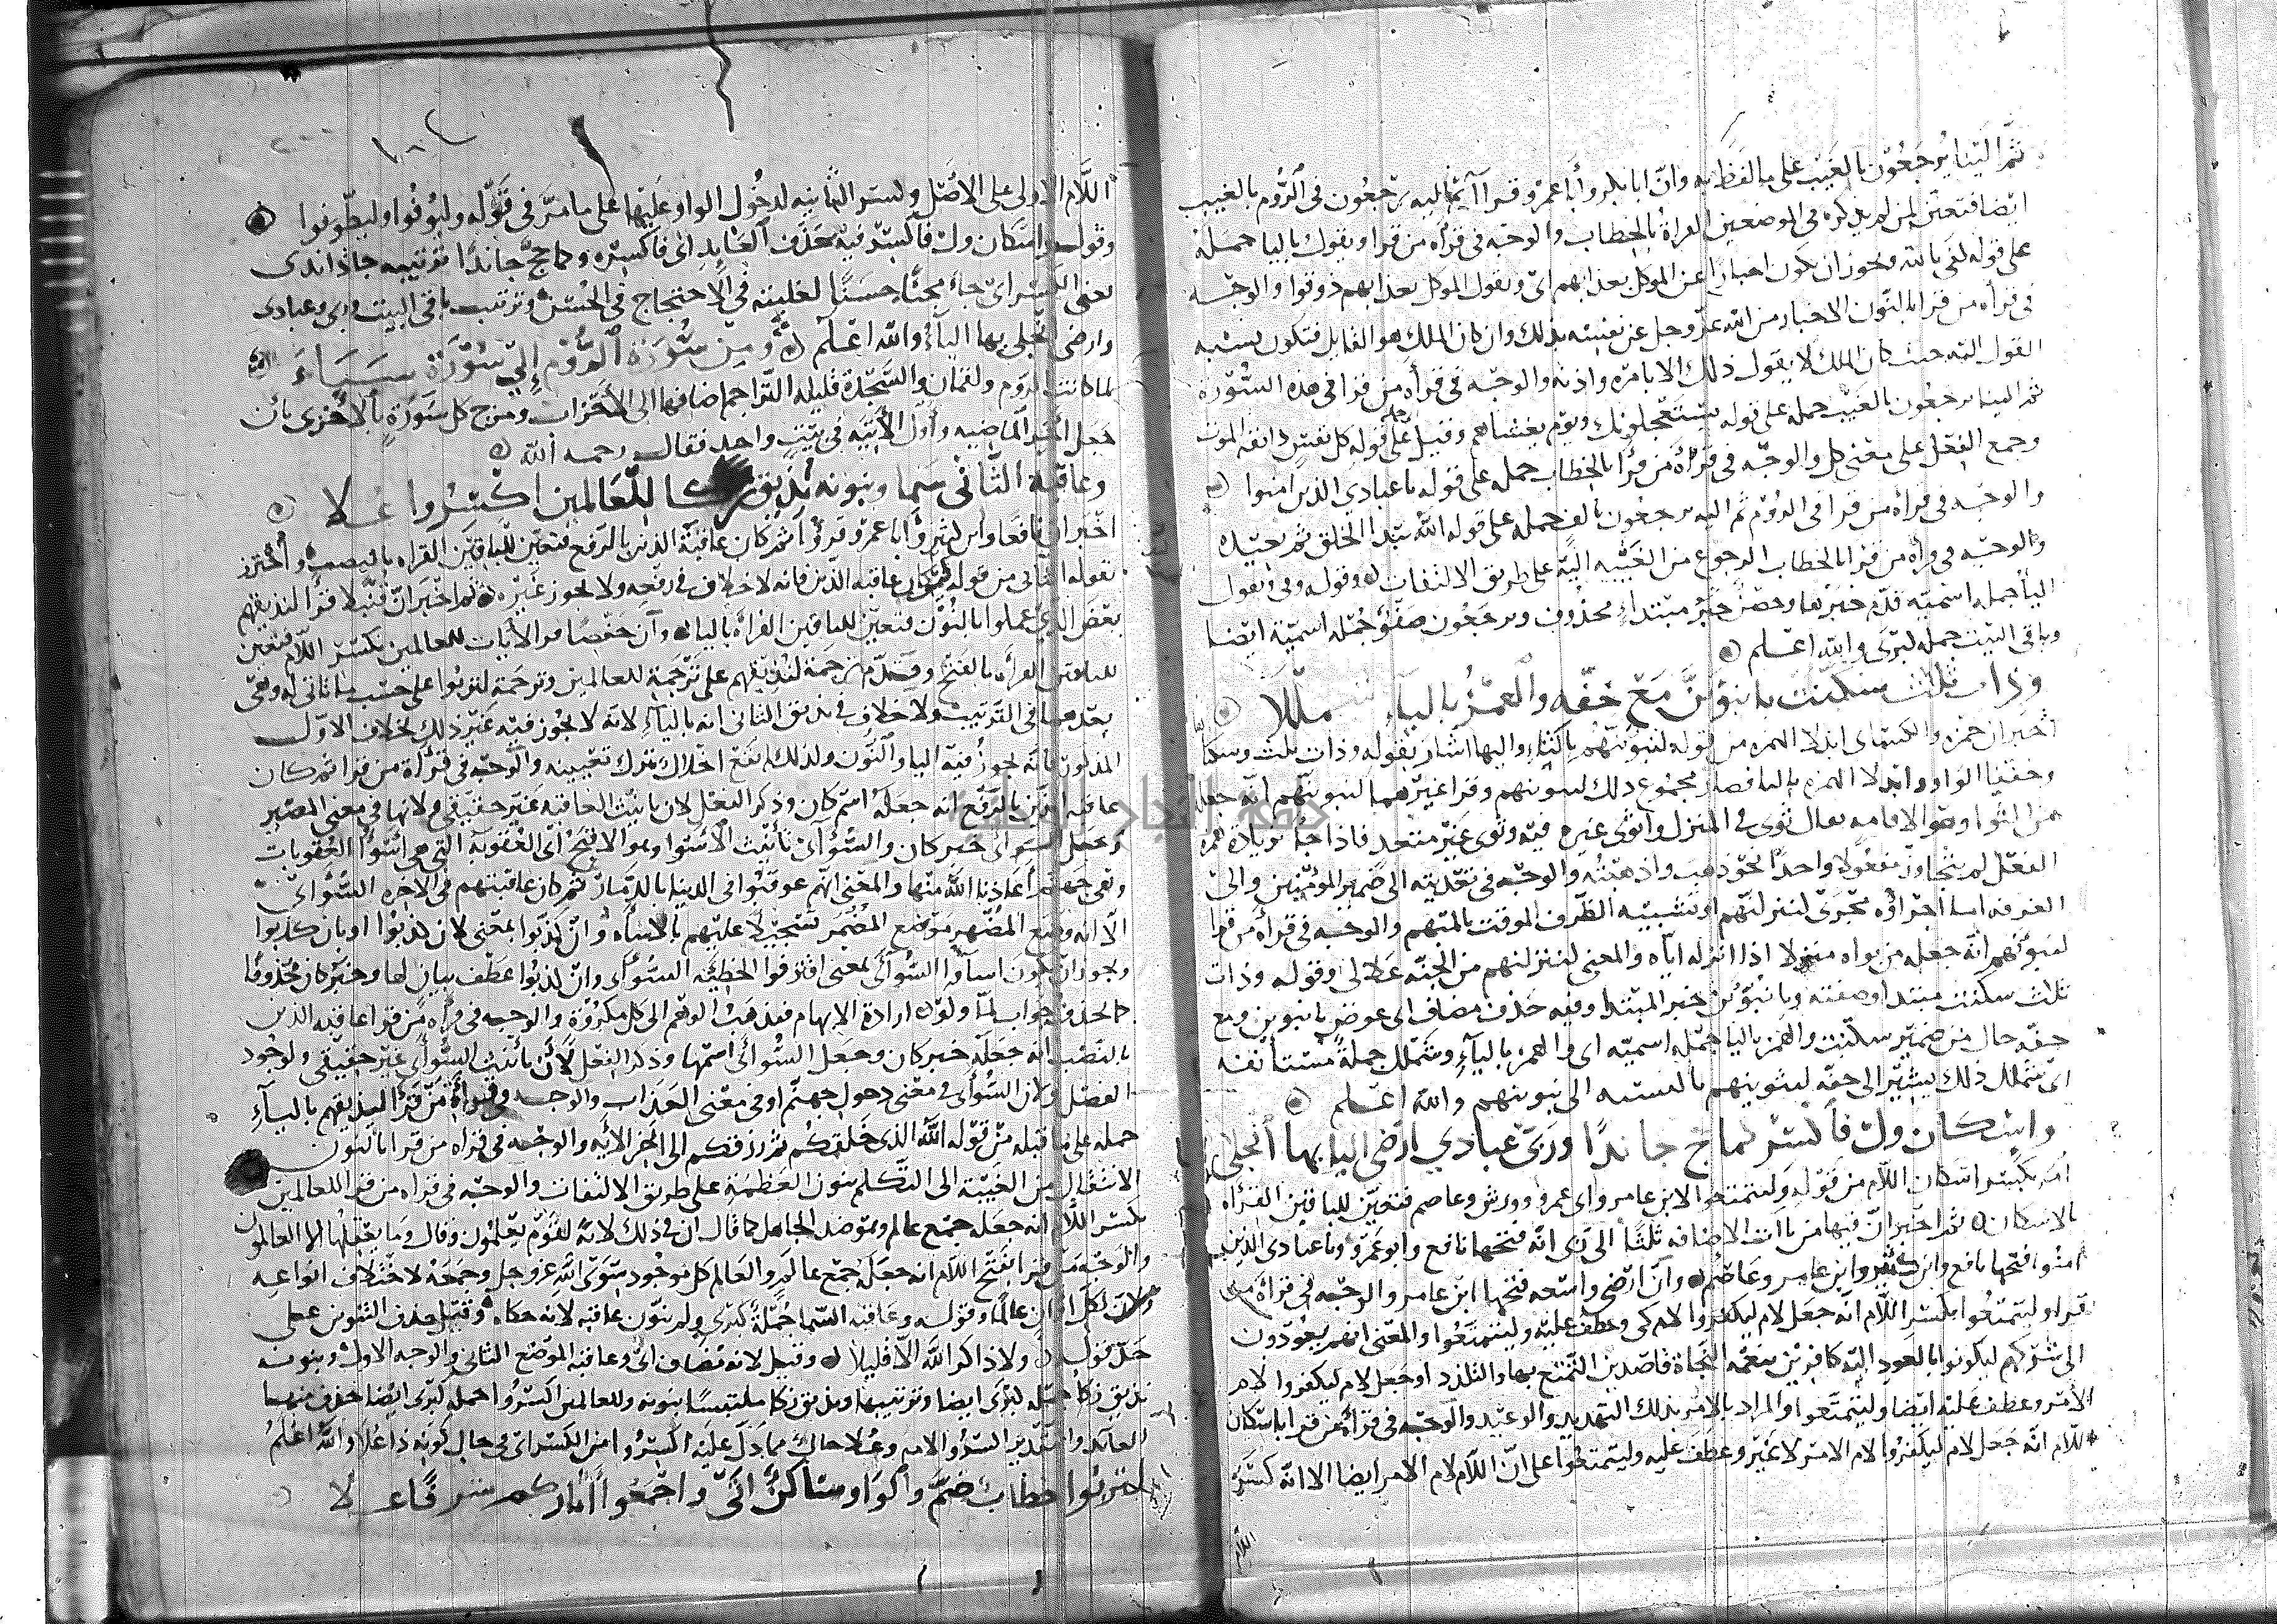 ثم الينا يرجعون بالغيب على ما لفظ به وان ابا بكر وأبا عمرو قرا آ ثم اليه يرجعون في الروم بالغيب
ايضا فتعين لمن لم يذكره في الموضعين القراة بالخطاب والوجه في قراه من قرا ويقول باليا حمله
على قوله كفى بالله ويجوز ان يكون اخبارا عن الموكل بعذابهم اى ويقول الموكل بعذابهم ذوقوا والوجه
في قرأه من قرا بالنون الاخبار من الله عز وجل عن نفسه بذلك وان كان الملك هو القايل فتكون نسبه
القول اليه حيث كان الملك لا يقول ذلك الا بامره واذنه والوجه في قرأه من قرا في هذه السورة
ثم الينا يرجعون بالغيب حمله على قوله يستعجلونك ويوم يغشاهم وقيل على قوله كل نفس ذائقه الموت
وجمع الفعل على معنى كل والوجه في قرأه من قرأ بالخطاب حمله على قوله يا عبادي الذين امنوا
والوجه في قراه من قرا في الروم ثم اليه يرجعون بالغيب حمله على قوله الله يبدا الخلق ثم يعيده
والوجه في قراه من قرا بالخطاب الرجوع من الغيبه اليه على طريق الالتفات وقوله وفي ويقول
اليا جمله اسميه قدم خبرها وحصن خبر مبتداء محذوف ويرجعون صفو جمله اسميه ايضا
وباقي البيت جمله كبرى والله اعلم
وذات ثلاث سكنت با نبوئن مع خفه والهمز بالياء شمللا
اخبر ان حمزه والكسائى ابدلا الهمزه من قوله لنبوئنهم بالثاء واليها اشار بقوله وذات ثلث وسكنا
وخففا الواو وابدلا الهمزه باليا فصار مجموع ذلك لنثوينهم وقرا غيرهما لنبوئنهم انه جعله
من الثوا وهو الاقامه يقال ثوى في المنزل واثوى غيره فيه وثوى غير متعد فاذا جا بزياده همزه
الفعل لم يتجاوز مفعولا واحدا نحو ذهب واذهبته والوجه في تعديته الى ضمير المومنين والى
الغرفه اما اجراؤه مجرى لننزلنهم او تشبيه الظرف الموقت بالمبهم والوجه في قرأه من قرا
لنبوئنهم انه جعله من بواه منزلا اذا انزله اياه والمعنى لننزلنهم من الجنه علالى وقوله وذات
ثلث سكنت مبتدا وصفته وبا نبوئن خبر المبتدا وفيه حذف مضاف اى عوض با نبوين ومع
خفه حال من ضمير سكنت والهمز باليا جمله اسميه اى والهمز بالياء وشملل جملة مستأنفه
اى شملل ذلك يشير الى خفه لنثوينهم بالنسبه الى نبوينهم والله اعلم
واسكان ول فاكسر كما حج جا ندا وربى عبادي ارضى اليا بها انجلى
امر بكسر اسكان اللام من قوله وليتمتعوا لابن عامر وابى عمرو وورش وعاصم فتعين للباقين القراه
بالاسكان ثم اخبر ان فيها من باات الاضافه ثلثا الى ربى انه فتحها نافع وابو عمرو ويا عبادى الذين
امنوا فتحها نافع وابن كثير وابن عامر وعاصم وان ارضى واسعه فتحها ابن عامر والوجه في قراه من
قرا وليتمتعوا بكسر اللام انه جعل لام ليكفروا لام كى وعطف عليه وليتمتعوا والمعنى انهم يعودون
الى شركهم ليكونوا بالعود اليه كافرين بنعمه النجاة قاصدين التمتع بها والتلذذ او جعل لام ليكفروا لام
الامر وعطف عليه ايضا وليتمتعوا والمراد بالامر بذلك التهديد والوعيد والوجه في قراه من قرا باسكان
اللام انه جعل لام ليكفروا لام الامر لا غير وعطف عليه وليتمتعوا على ان اللام لام الامر ايضا الا انه كسر
اللام
اللام الاولى على الاصل ولسر الثانيه لدخول الواو عليها على ما مر في قوله وليوفوا وليطوفوا
وقوله واسكان ول فاكسر فيه حذف العايد اى فاكسره وكما حج جاندا ترتيبه جا ذاندى
يعنى الكسر اى جاء مجيئا حسنا لغلبته في الاحتجاج في الحسن وترتيب باقي البيت وربى وعبادى
وارضى انجلى بها الياء والله اعلم ومن سورة الروم إلى سورة سباء
لما كانت الروم ولقمان والسجدة قليله التراجم اضافها الى الاحزاب ومزج كل سورة بالاخرى بان
جعل اخر الماضيه وأول الاتيه في بيت واحد فقال رحمه الله
وعاقبة الثانى سما وبنونه نذيق زكا للعالمين اكسروا علا
اخبر ان نافعا وابن كثير وابا عمرو قرؤا ثم كان عاقبة الذين بالرفع فتعين للباقين القراه بالنصب واحترز
بقوله الثانى من قوله كيف كان عاقبه الذين فانه لا خلاف في رفعه ولا يجوز غيره ثم اخبر ان قنبلا قرأ لنذيقهم
بعض الذي عملوا بالنون فتعين للباقين القراه باليا وان حفصا قرا لايات للعالمين بكسر اللام فتعين
للباقين القراه بالفتح وقدم ترجمة لنذيقهم على ترجمة للعالمين وترجمة لتربوا على حسب ما تاتى له وهى
بعدهما في الترتيب ولا خلاف في نذيق الثانى انه بالياء لانه لا يجوز فيه غير ذلك بخلاف الاول
المذكور فانه يجوز فيه اليا والنون ولذلك لم يقع اخلال بترك تعيينه والوجه في قرأة من قرا ثم كان
عاقبه الذين بالرفع انه جعله اسم كان وذكر الفعل لان تانيث العاقبه غير حقيقي ولانها في معنى المصير
وجعل السوأى خبر كان والسوأى تأنيث الاسوا وهو الاقبح اى العقوبة التى هى اسوأ العقوبات
وهى جهنم أعاذنا الله منها والمعنى انهم عوقبوا في الدنيا بالدمار ثم كان عاقبتهم في الاخره السوأى
الا انه وضع المظهر موضع المضمر تسجيلا عليهم بالاساه وان كذبوا بمعنى لان كذبوا او بان كذبوا
ويجوز ان يكون اساوا السوأى بمعنى اقترفوا الخطيئه السوأى وان كذبوا عطف بيان لها وخبر كان محذوفا
كما يحذف جواب لما ولو ارادة الابهام فيذهب الوهم الى كل مكروه والوجه في قراه من قرا عاقبه الذين
بالنصب انه جعله خبر كان وجعل السوأى اسمها وذكر الفعل لان تأنيث السوأى غير حقيقى ولوجود
الفصل ولان السوأى في معنى دخول جهنم او في معنى العذاب والوجه في قراه من قرأ ليذيقهم بالياء
حمله على ما قبله من قوله الله الذى خلقكم ثم رزقكم الى اخر الايه والوجه في قراه من قرا بالنون
الانتقال من الغيبة الى التكلم بنون العظمة على طريق الالتفات والوجه في قراه من قرا للعالمين
بكسر اللام انه جعله جمع عالم وهو ضد الجاهل كما قال ان في ذلك لاية لقوم يعلمون وقال وما يعقلها الا العالمون
والوجه من قرا بفتح اللام انه جعله جمع عالم والعالم كل موجود سوى الله عز وجل وجمعه لاختلاف انواعه
ولان لكل اوان عالما وقوله وعاقبه الثانى سما جملة كبرى ولم ينون عاقبه لانه حكاه وقيل حذف التنوين على
حد قوله ولا ذاكر الله الا قليلا وقيل لانه مضاف اى وعاقبه الموضع الثانى والوجه الاول وبنونه
نذيق زكا جمله كبرى ايضا وترتيبها ونذيق زكا ملتبسا بنونه وللعالمين اكسروا جمله كبرى ايضا حذف منها
العائد والتقدير اكسروا لامه وعلا حال مما دل عليه اكسروا من الكسر اى في حال كونه ذا علا والله اعلم
لتربوا خطاب ضم والواو ساكن اتى واجمعوا اثار كم شرفا علا